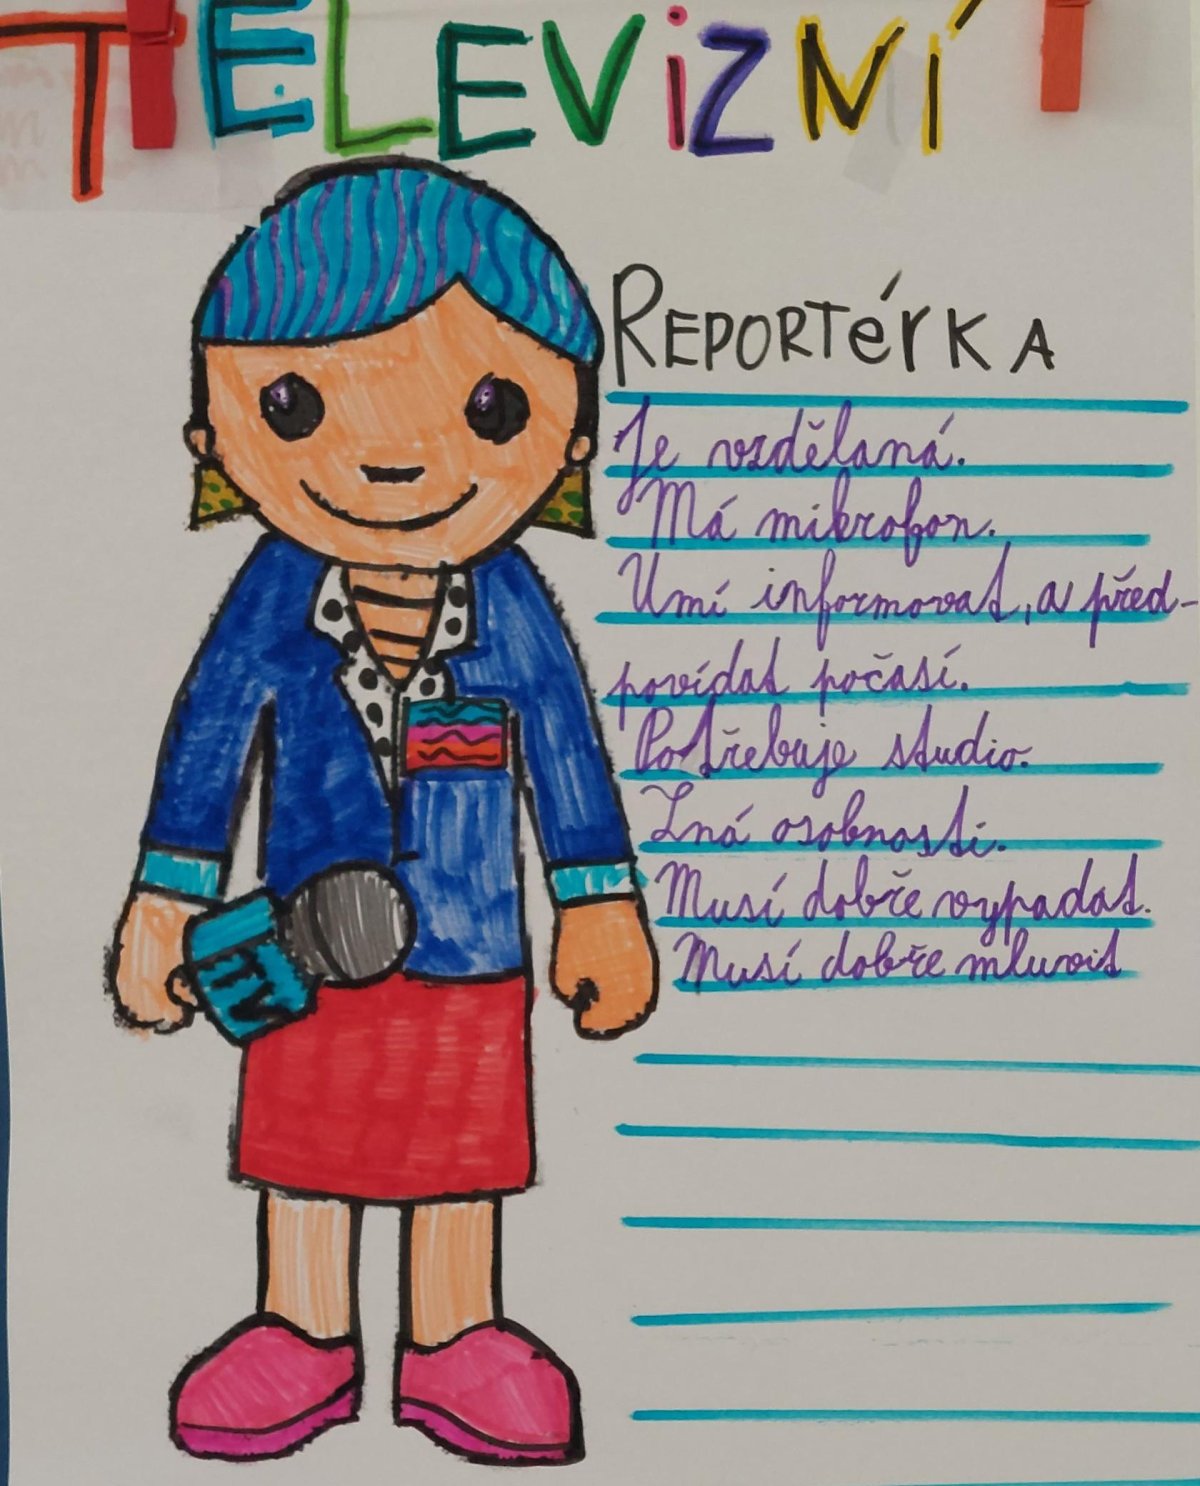 TELEVIZNÍ
REPORTérKA
Je vzdělaná.
Má mikrofon.
Umí informovat, a před-
povídat počasí.
Potřebuje studio.
Zná osobnosti.
Musí dobře vypadat.
Musí dobře mluvit
TV